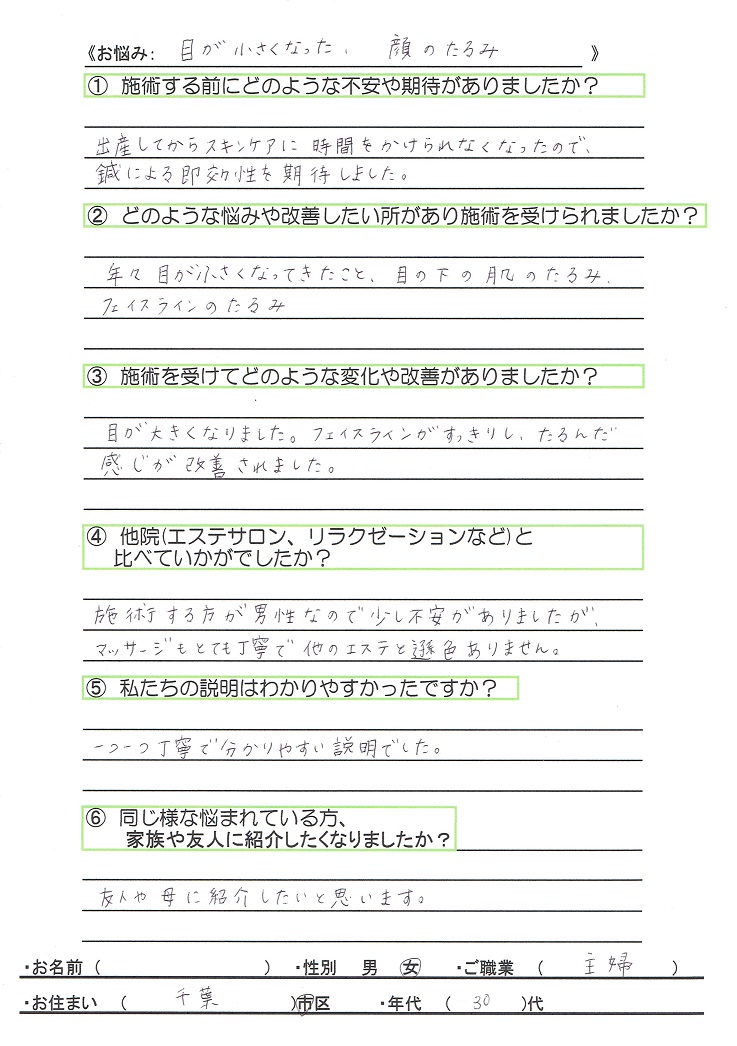 《お悩み: 目が小さくなった、 顔のたるみ 》
① 施術する前にどのような不安や期待がありましたか？
出産してからスキンケアに時間をかけられなくなったので、
鍼による即効性を期待しました。
② どのような悩みや改善したい所があり施術を受けられましたか？
年々目が小さくなってきたこと、目の下の肌のたるみ、
フェイスラインのたるみ
③ 施術を受けてどのような変化や改善がありましたか？
目が大きくなりました。フェイスラインがすっきりし、たるんだ
感じが改善されました。
④ 他院(エステサロン、リラクゼーションなど)と
比べていかがでしたか？
施術する方が男性なので少し不安がありましたが、
マッサージもとても丁寧で他のエステと遜色ありません。
⑤ 私たちの説明はわかりやすかったですか？
一つ一つ丁寧で分かりやすい説明でした。
⑥ 同じ様な悩まれている方、
家族や友人に紹介したくなりましたか？
友人や母に紹介したいと思います。
・お名前 ( ) ・性別 男 女 ・ご職業 ( 主婦 )
・お住まい ( 千葉 )市区 ・年代 ( 30 )代